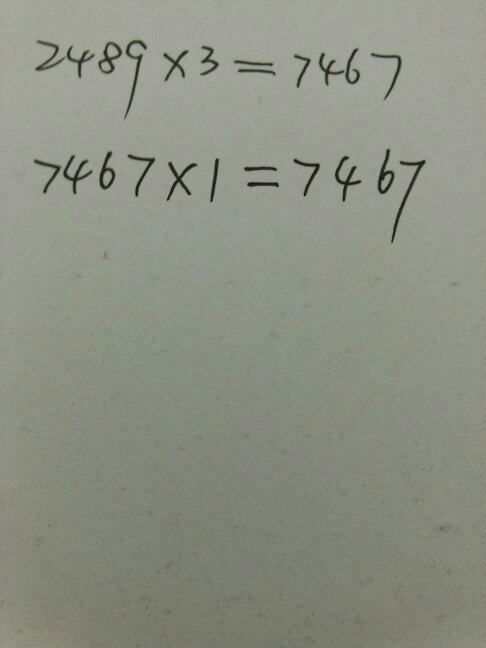 2489×3=7467
7467×1=7467